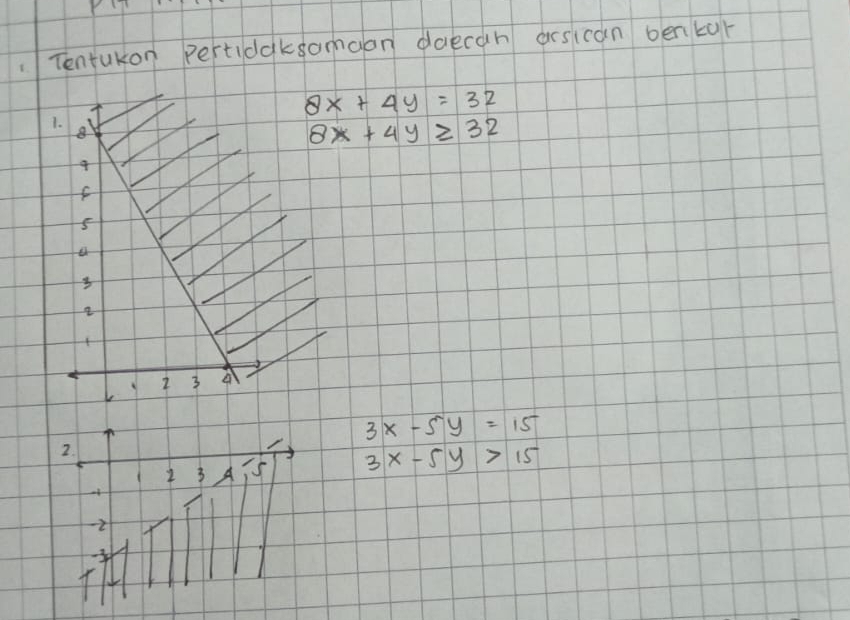 1. Tentukan Pertidaksamaan daerah arsiran berikut
1.
8x + 4y = 32
8x + 4y ≥ 32
8
7
6
5
4
3
2
1
1 2 3 4
2.
3x - 5y = 15
3x - 5y > 15
1 2 3 4 5
-1
-2
-3